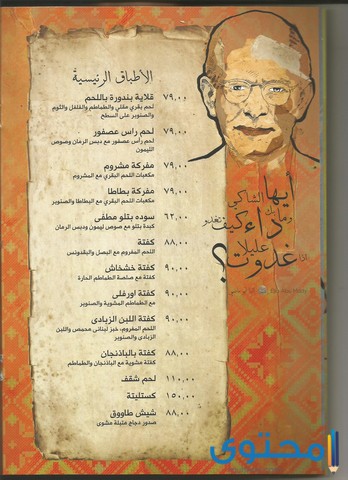 الأطباق الرئيسية
قلاية بندورة باللحم ٧٩,٠٠
لحم بقري مقلي والطماطم والفلفل والثوم
والصنوبر على السطح
لحم راس عصفور ٧٩,٠٠
لحم رأس عصفور مع دبس الرمان وصوص
الليمون
مفركة مشروم ٧٩,٠٠
مكعبات اللحم البقري مع المشروم
مفركة بطاطا ٧٩,٠٠
مكعبات اللحم البقري مع البطاطا والصنوبر
سوده بتلو مطفى ٦٢,٠٠
كبدة بتلو مع صوص ليمون ودبس الرمان
كفتة ٨٨,٠٠
اللحم المفروم مع البصل والبقدونس
كفتة خشخاش ٩٠,٠٠
كفتة مع صلصة الطماطم الحارة
كفتة اورفلى ٩٠,٠٠
مع الطماطم المشوية والصنوبر
كفتة اللبن الزبادى ٩٠,٠٠
اللحم المفروم، خبز لبنانى محمص واللبن
الزبادى والصنوبر
كفتة بالباذنجان ٨٨,٠٠
كفتة مشوية مع الباذنجان والطماطم
لحم شقف ١١٠,٠٠
كستليتة ١٥٠,٠٠
شيش طاووق ٨٨,٠٠
صدور دجاج متبلة مشوى
أيها
الشاكي
وما بك
داء
كيف تغدو
إذا
غدوت
عليلا
؟
محتوى